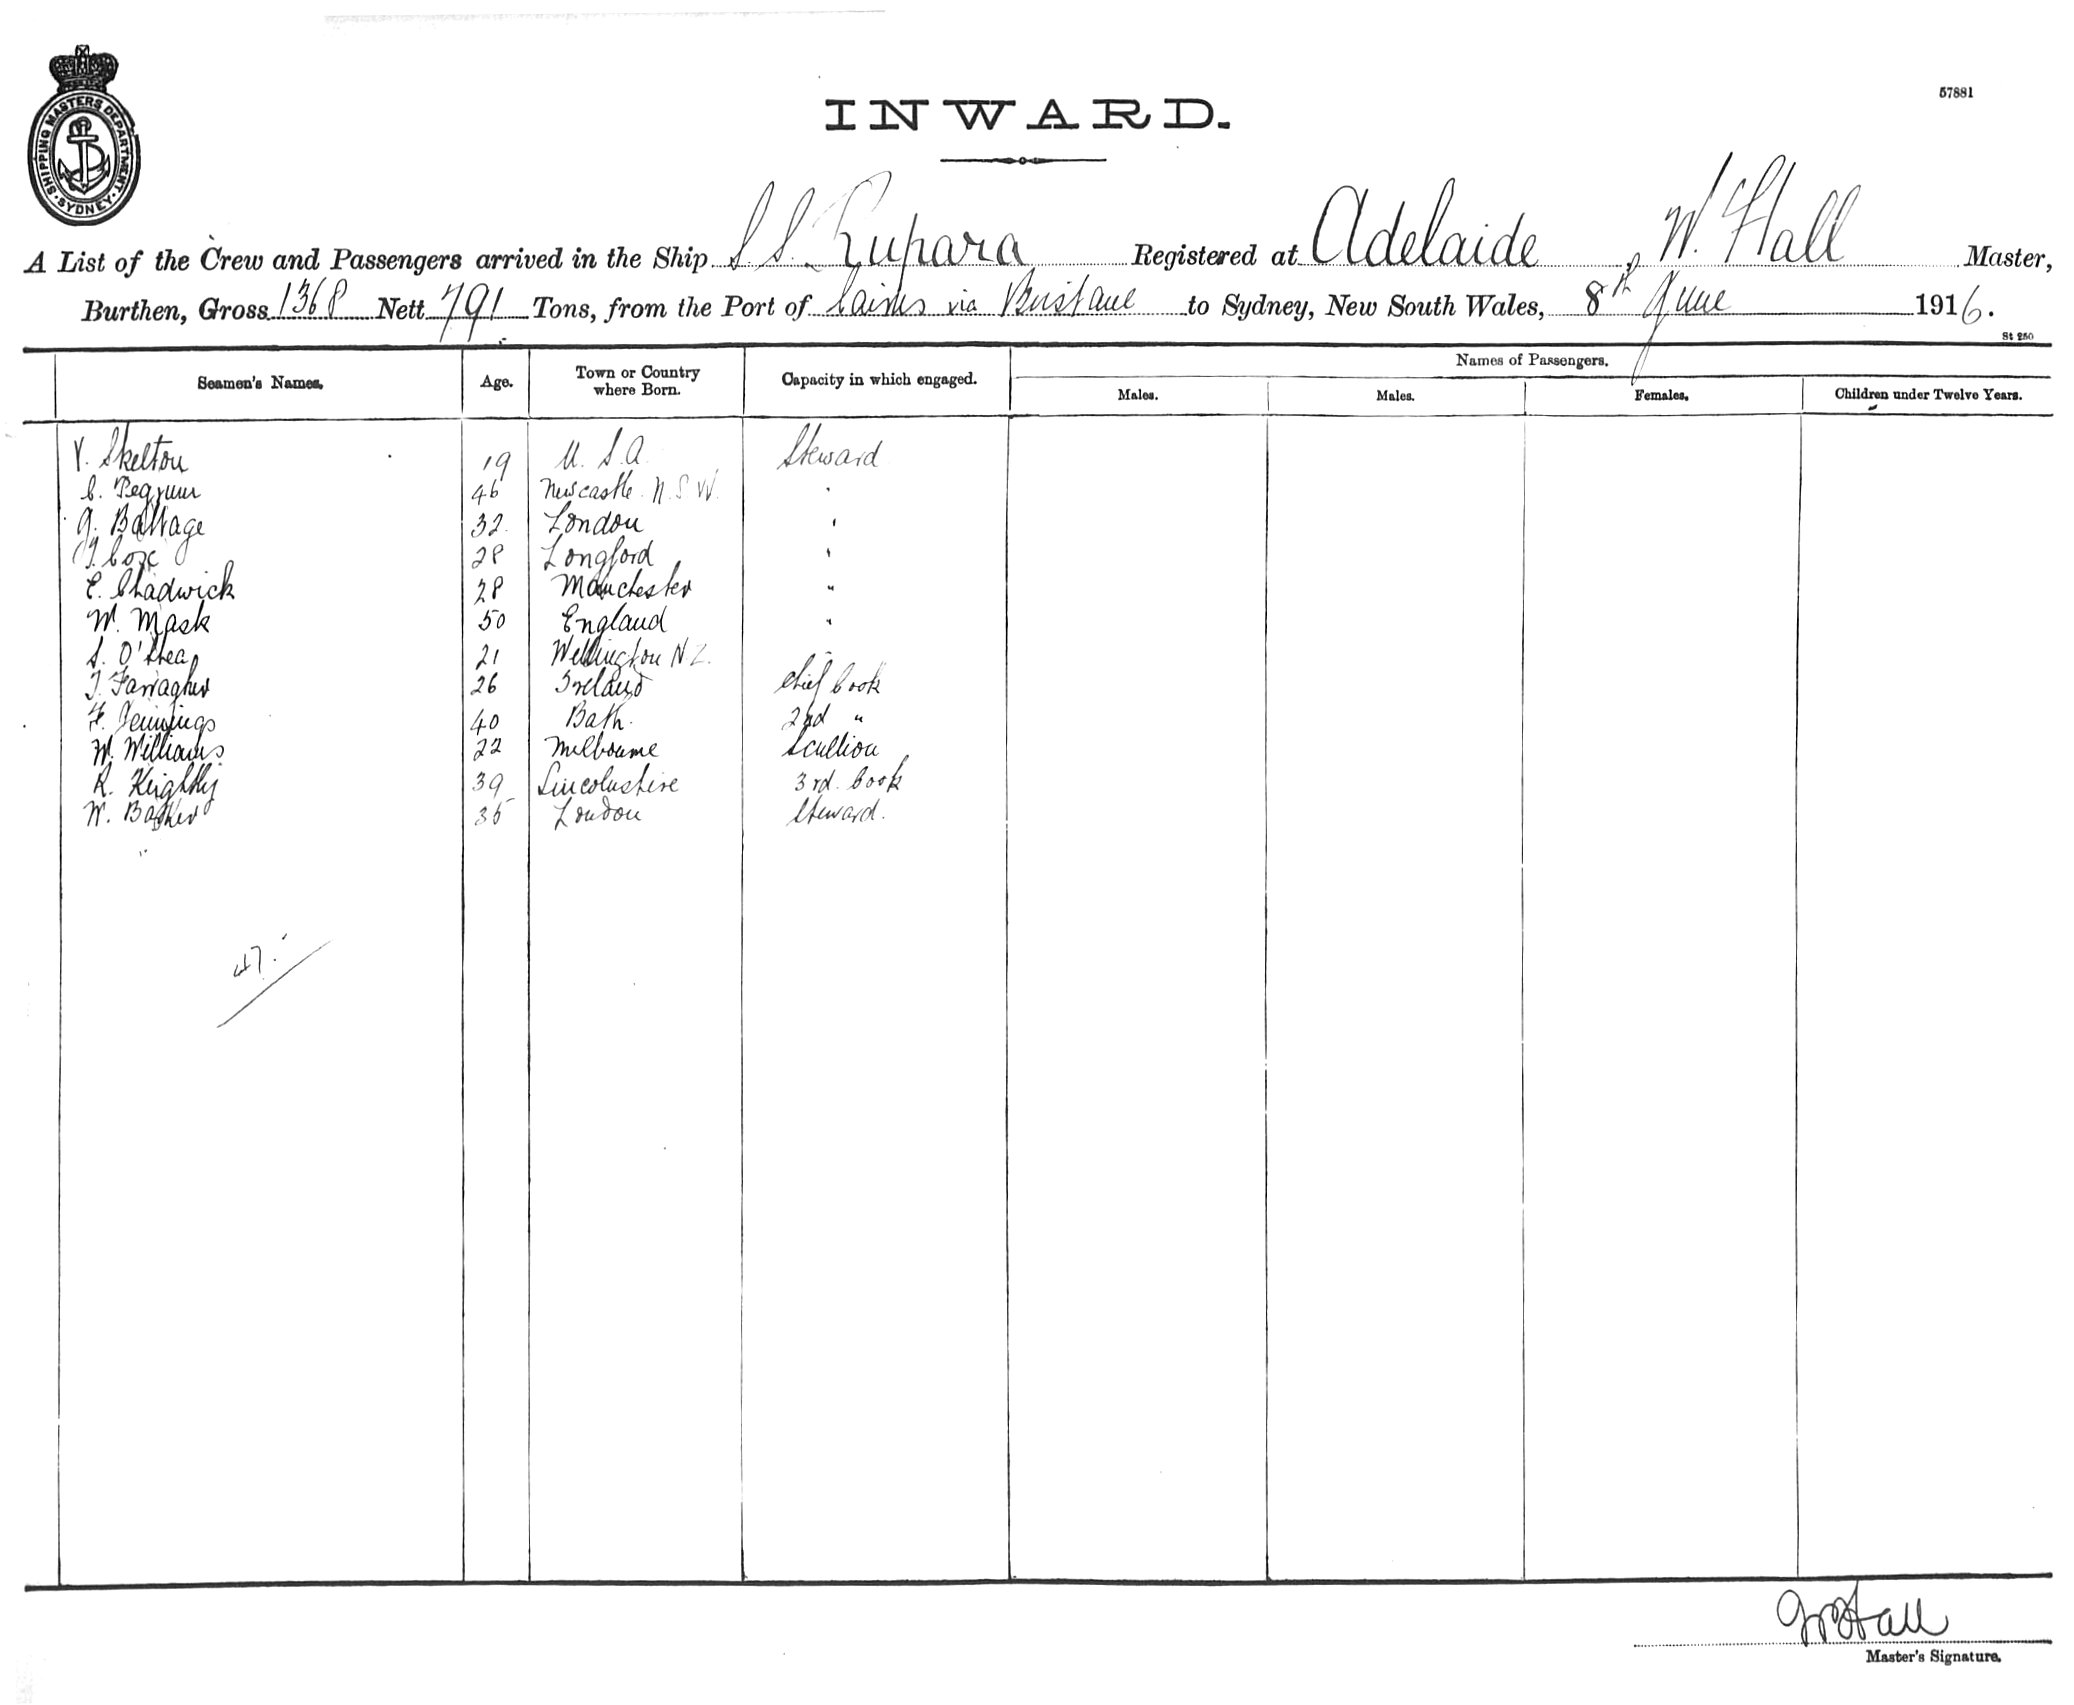 SHIPPING MASTERS DEPARTMENT
SYDNEY
57881
INWARD.
A List of the Crew and Passengers arrived in the Ship S.S. Rupara Registered at Adelaide, W. Hall Master,
Burthen, Gross 1368 Nett 791 Tons, from the Port of Cairns via Brisbane to Sydney, New South Wales, 8th June 1916.
St 250
Seamen's Names. Age. Town or Country where Born. Capacity in which engaged. Names of Passengers.
Males. Males. Females. Children under Twelve Years.
V. Skelton 19 U.S.A. Steward
C. Pegrum 46 Newcastle N.S.W. "
G. Battage 32 London "
Coxe 28 Longford "
E. Chadwick 28 Manchester "
W. Mask 50 England "
S. O'Shea 21 Wellington N.Z.
J. Farragher 26 Ireland Chief Cook
F. Jennings 40 Bath. 2nd "
W. Williams 22 Melbourne Scullion
R. Keightly 39 Lincolnshire 3rd. Cook
W. 35 London Steward.
47.
Hall
Master's Signature.